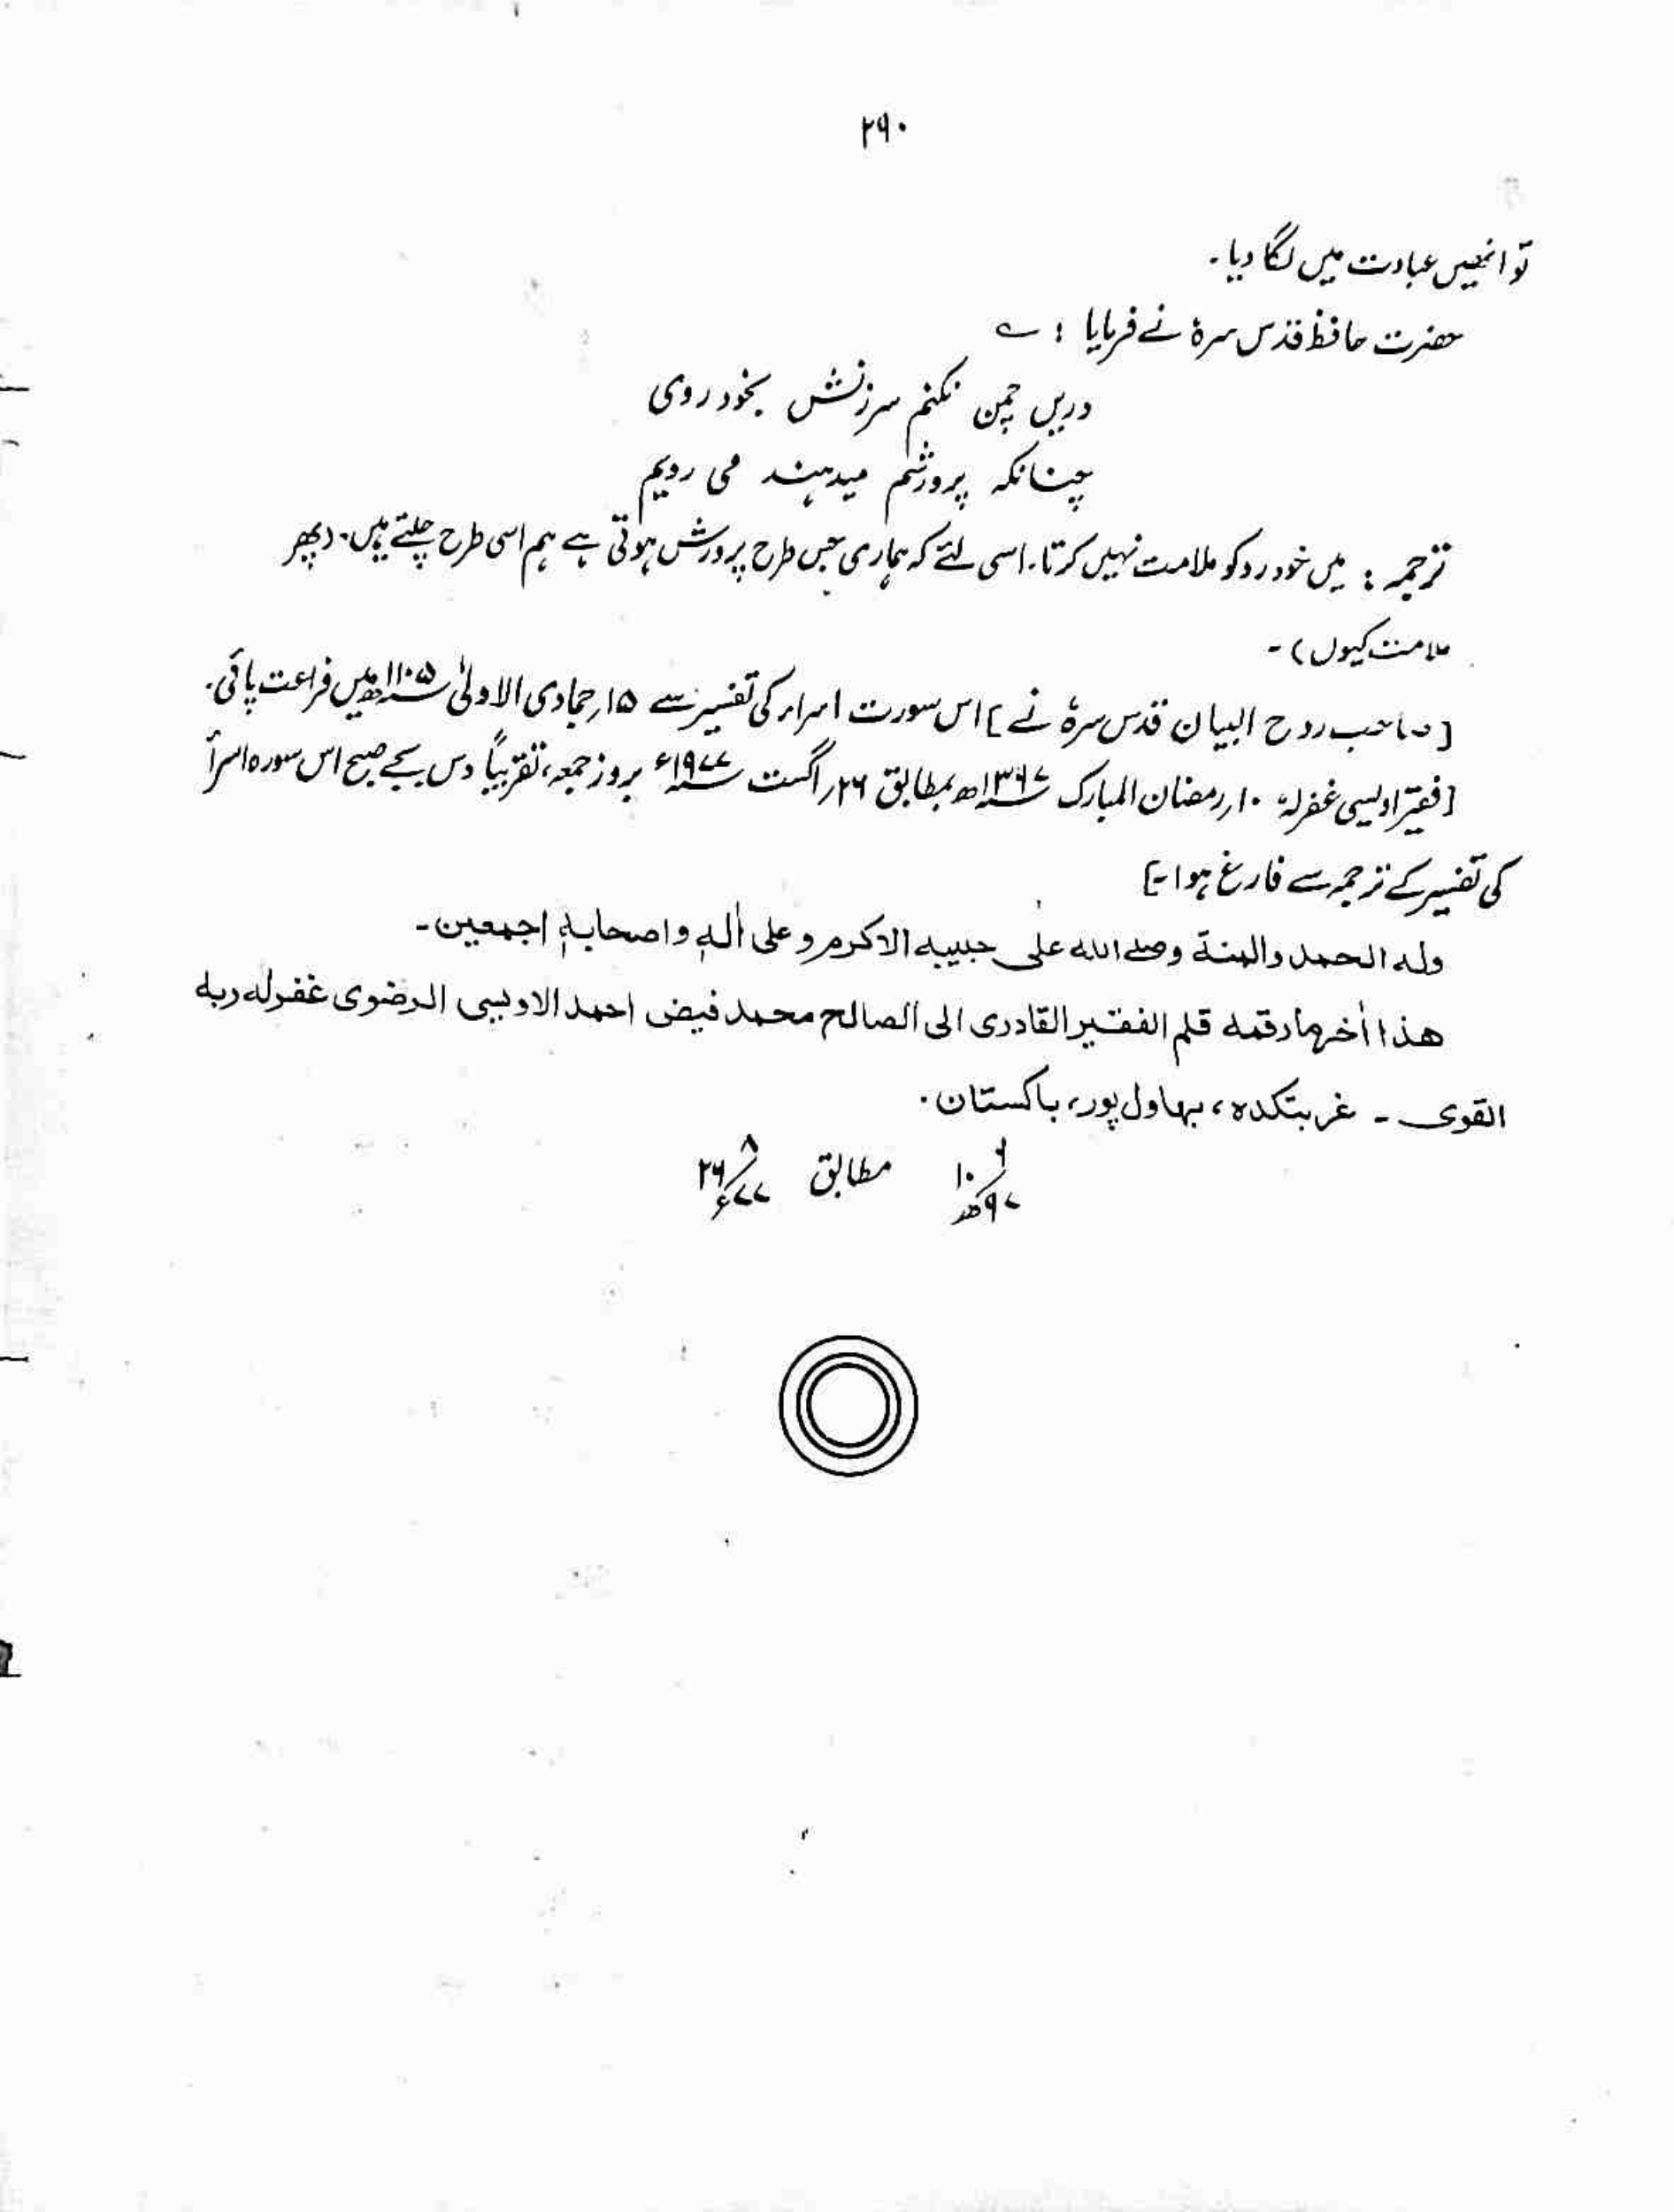 ۲۹۰
تو انھیں عبادت میں لگا دیا۔
حضرت حافظ قدس سرہٗ نے فرمایا : ؎
دریں چمن نکنم سرزنش بخود روی
چنانکہ پرورشم میدہند می رویم
ترجمہ : میں خود رو کو ملامت نہیں کرتا۔ اسی لئے کہ ہماری جس طرح پرورش ہوتی ہے ہم اسی طرح چلتے ہیں۔ (پھر
ملامت کیوں)۔
[صاحب روح البیان قدس سرہٗ نے] اس سورت اسراء کی تفسیر سے ۱۵؍ جمادی الاولیٰ ۱۱۰۵ھ میں فراغت پائی۔
[فقیر اویسی غفرلہٗ ۱۰؍ رمضان المبارک ۱۳۹۷ھ بمطابق ۲۶؍ اگست ۱۹۷۷ء بروز جمعہ، تقریباً دس بجے صبح اس سورہ اسرأ
کی تفسیر کے ترجمہ سے فارغ ہوا۔]
وله الحمد والمنة وصلے الله علی حبیبه الاکرم و علی اٰلهٖ و اصحابهٖ اجمعین۔
هذا اٰخر ما رقمه قلم الفقیر القادری ابی الصالح محمد فیض احمد الاویسی الرضوی غفرله ربه
القوی ۔ غربتکدہ، بہاول پور، پاکستان۔
۱۰/۹/۹۷ھ مطابق ۲۶/۸/۷۷ء